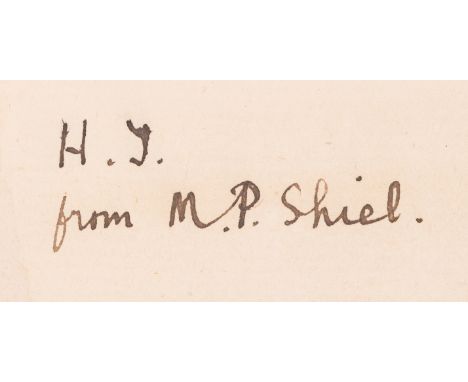 H. J.
from M.P. Shiel.